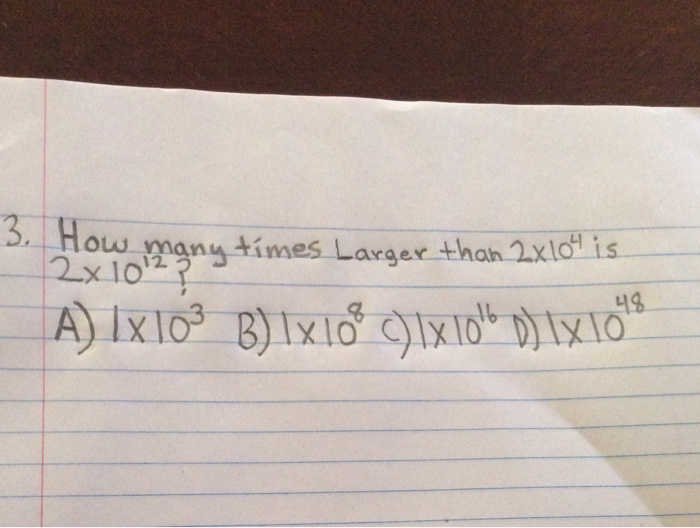 3. How many times Larger than 2x10⁴ is
2x10¹²?
A) 1x10³ B) 1x10⁸ C) 1x10¹⁶ D) 1x10⁴⁸